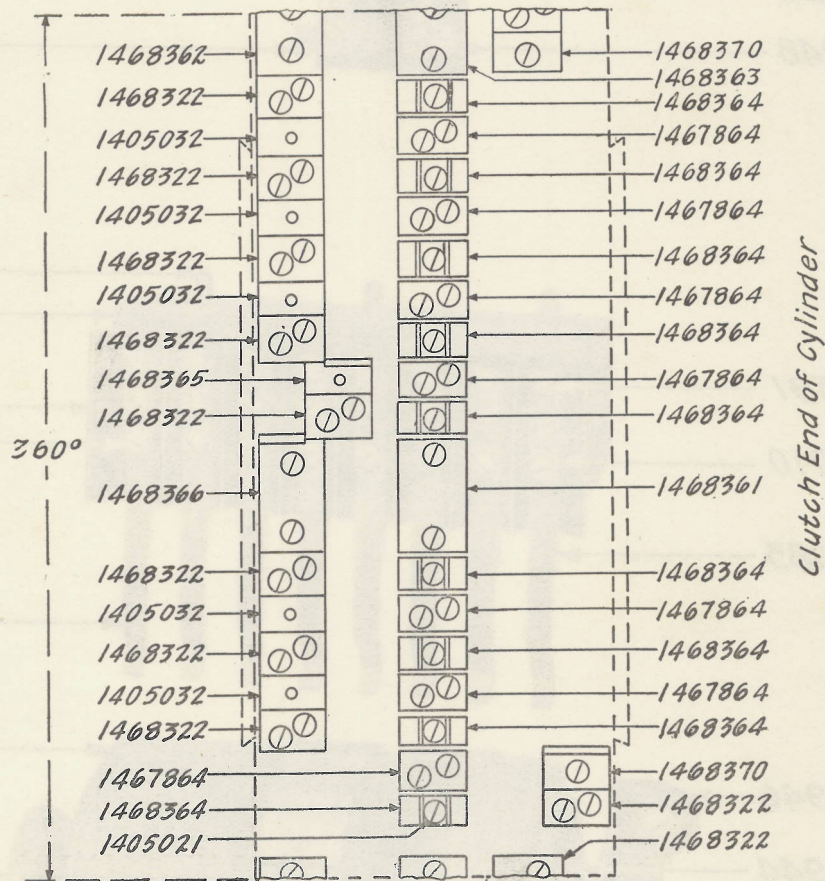 1468362
1468322
1405032
1468322
1405032
1468322
1405032
1468322
1468365
1468322
360°
1468366
1468322
1405032
1468322
1405032
1468322
1467864
1468364
1405021
1468370
1468363
1468364
1467864
1468364
1467864
1468364
1467864
1468364
1467864
1468364
1468361
1468364
1467864
1468364
1467864
1468364
1468370
1468322
1468322
Clutch End of Cylinder